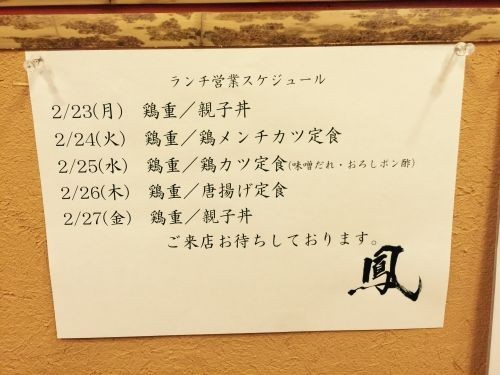 ランチ営業スケジュール
2/23(月) 鶏重／親子丼
2/24(火) 鶏重／鶏メンチカツ定食
2/25(水) 鶏重／鶏カツ定食(味噌だれ・おろしポン酢)
2/26(木) 鶏重／唐揚げ定食
2/27(金) 鶏重／親子丼
ご来店お待ちしております。
鳳